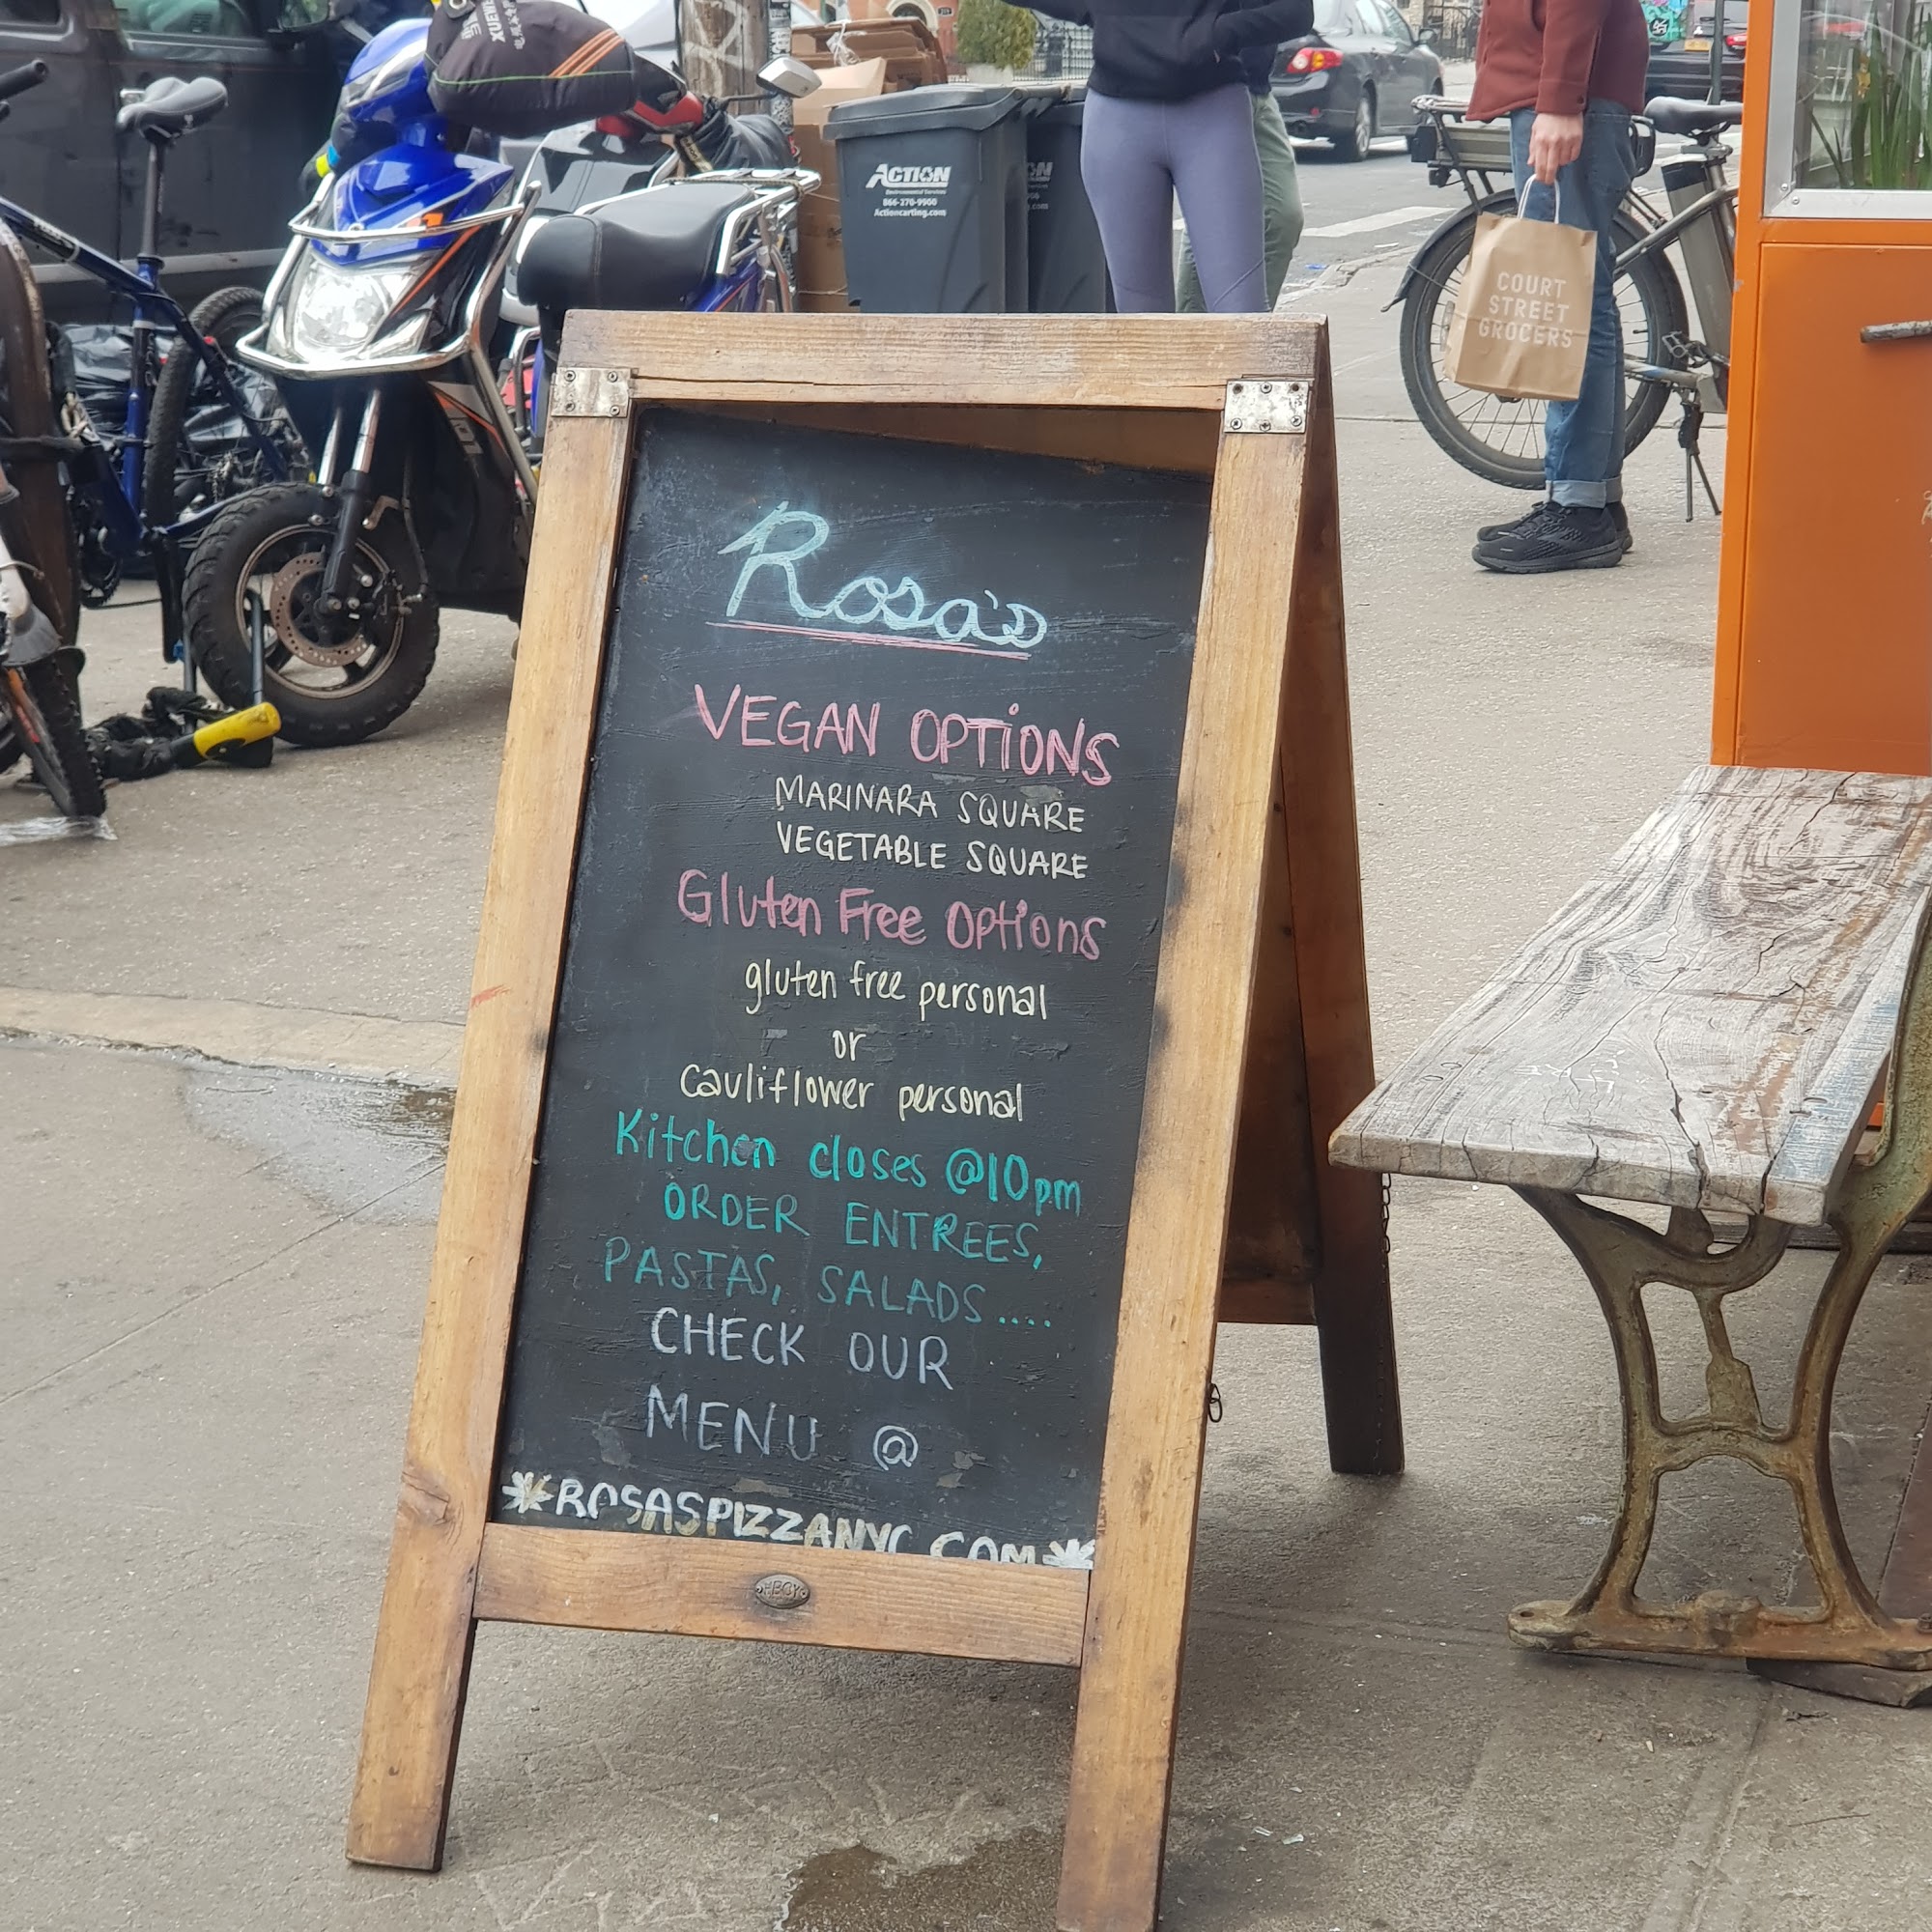 ACTION
Environmental Services
866-270-9900
Actioncarting.com
COURT
STREET
GROCERS
Rosa's
VEGAN OPTIONS
MARINARA SQUARE
VEGETABLE SQUARE
Gluten Free Options
gluten free personal
or
Cauliflower personal
Kitchen closes @10pm
ORDER ENTREES,
PASTAS, SALADS....
CHECK OUR
MENU @
ROSASPIZZANYC.COM